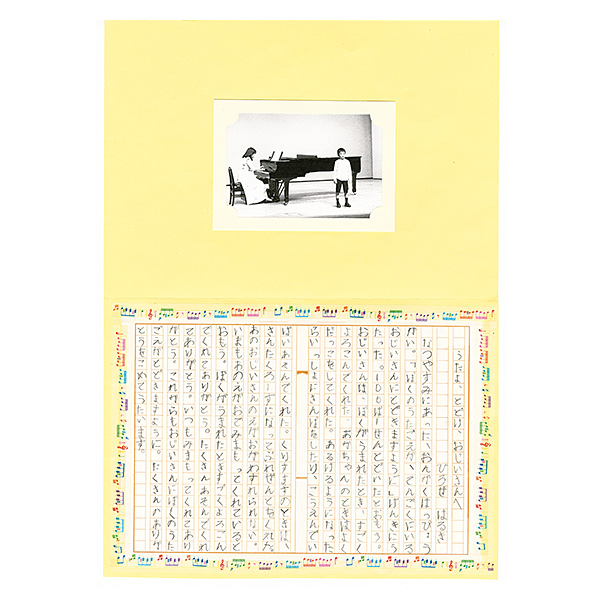 うたよ、とどけ、おじいさんへ
ひろせ はるき
なつやすみにあった、おんがくはっぴょう
かい。「ぼくのうたごえが、てんごくにいる
おじいさんにとどきますように」げんきにう
たった。
おじいさんは、ぼくがうまれたとき、すごく
よろこんでくれた。あかちゃんのときはよく
だっこをしてくれた。あるけるようになった
らいっしょにさんぽをしたり、こうえんでい
ぱいあそんでくれた。くりすますのときは、
さんたくろーすになってぷれぜんとをくれた。
あのおじいさんのえがおがわすれられない。
いまもあのえがおでみまもってくれていると
おもう。ぼくがうまれたときすごくよろこん
でくれてありがとう。たくさんあそんでくれ
てありがとう。いつもみまもってくれてあり
がとう。これからもおじいさんにぼくのうた
ごえがとどきますように。たくさんのありが
とうをこめてうたいます。